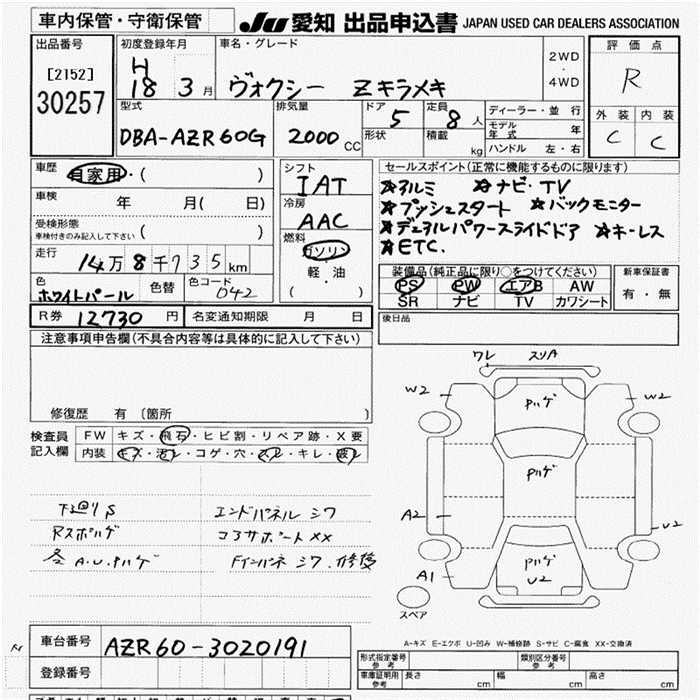 車内保管・守衛保管
JU 愛知 出品申込書 JAPAN USED CAR DEALERS ASSOCIATION
出品番号
[2152]
30257
初度登録年月
H
18 3月
車名・グレード
ヴォクシー Zキラメキ
2WD
・
4WD
評価点
R
外装 内装
C C
型式
DBA-AZR60G
排気量
2000 CC
ドア 5
形状
定員 8人
積載 kg
ディーラー・並行
モデル年式 年
ハンドル 左・右
車歴 自家用・( )
車検 年 月( 日)
受検形態
車検付きのみ記入して下さい ( )
走行
14万8千735km
色
ホワイトパール
色替
色コード
042
シフト
IAT
冷房
AAC
燃料
ガソリン
軽・油
( )
セールスポイント(正常に機能するものに限ります)
☆アルミ ☆ナビ・TV
☆プッシュスタート ☆バックモニター
☆デュアルパワースライドドア ☆キーレス
☆ETC.
装備品(純正品に限り○をつけてください)
PS PW エアB AW
SR ナビ TV カワシート
新車保証書
有・無
R券 12730円
名変通知期限 月 日
後日品
注意事項申告欄(不具合内容等は具体的に記入して下さい)
修復歴 有 〔箇所 〕
検査員
記入欄
FW キズ・飛石・ヒビ割・リペア跡・X要
内装 キズ・汚レ・コゲ・穴・スレ・キレ・破レ
下廻りS
Rスポハゲ
各A.U.Pハゲ
エンドパネルシワ
コアサポートXX
Fインパネシワ.修復
ワレ スリA
W2 W2
Pハゲ
Pハゲ
A2 U2
Pハゲ
U2
A1
スペア
A-キズ E-エクボ U-凹み W-補修跡 S-サビ C-腐食 XX-交換済
車台番号 AZR60-3020191
登録番号
形式指定番号
参考
類別区分番号
参考
車庫証明用
参考
長さ cm 幅 cm 高さ cm